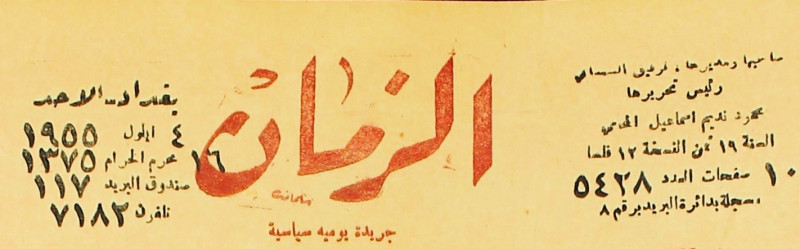 صاحبها ومديرها، توفيق السمعاني
رئيس تحريرها
محمود نديم اسماعيل المحامي
السنة ١٩ ثمن النسخة ١٢ فلسا
١٠ صفحات العدد ٥٤٢٨
مسجلة بدائرة البريد برقم ٨
الزمان
جريدة يوميه سياسية
بغداد - الاحد
٤ ايلول ١٩٥٥
١٦ محرم الحرام ١٣٧٥
صندوق البريد ١١٧
تلفون ٧١٨٢